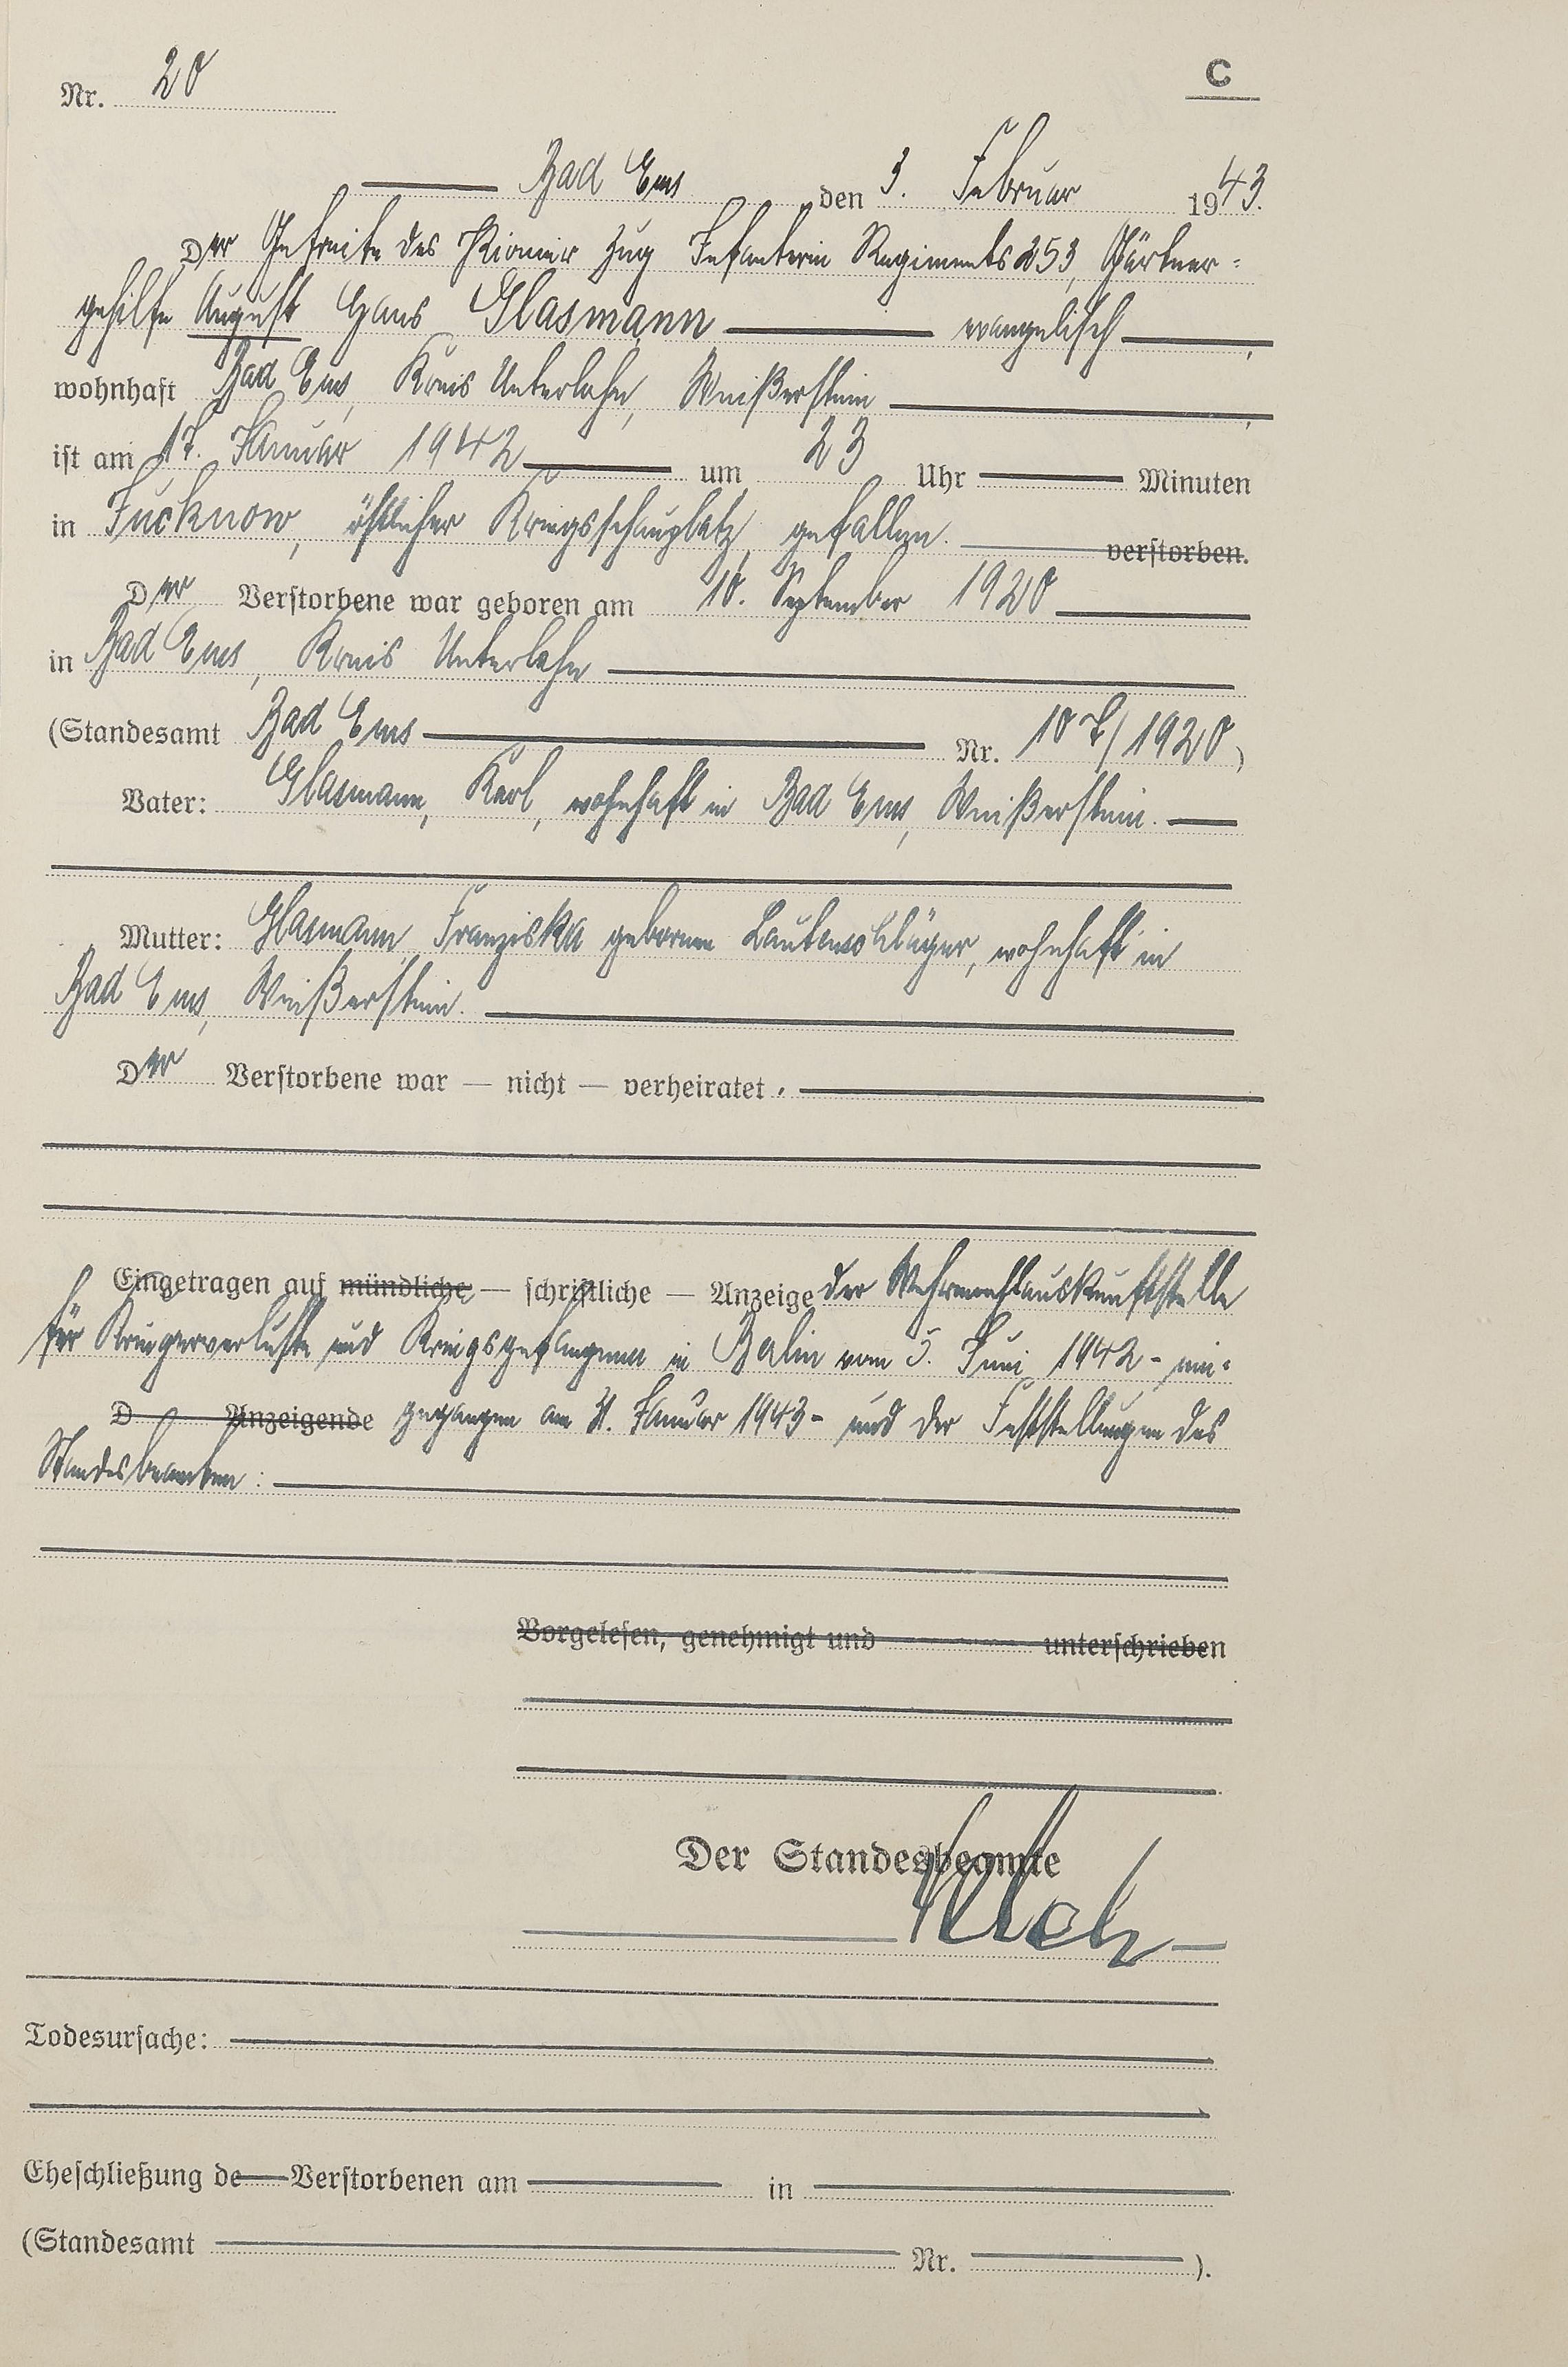 Nr. 20
C
Bad Ems den 3. Februar 1943.
Der Gefreite des Pionier Zug Infanterie Regiments 253, Gärtner=
gehilfe August Hans Glasmann evangelisch,
wohnhaft Bad Ems, Kreis Unterlahn, Weißerstein,
ist am 17. Januar 1942 um 23 Uhr Minuten
in Fucknow, östlicher Kriegsschauplatz, gefallen. verstorben.
Der Verstorbene war geboren am 10. September 1920
in Bad Ems, Kreis Unterlahn
(Standesamt Bad Ems Nr. 107/1920)
Vater: Glasmann, Karl, wohnhaft in Bad Ems, Weißerstein.
Mutter: Glasmann, Franziska geborene Lautenschläger, wohnhaft in
Bad Ems, Weißerstein.
Der Verstorbene war — nicht — verheiratet.
Eingetragen auf mündliche — schriftliche — Anzeige der Wehrmachtauskunftstelle
für Kriegerverluste und Kriegsgefangene in Berlin vom 5. Juni 1942 - ein=
D Anzeigende gegangen am 21. Januar 1943 - und der Feststellungen des
Standesbeamten:
Vorgelesen, genehmigt und unterschrieben
Der Standesbeamte
Todesursache:
Eheschließung de Verstorbenen am in
(Standesamt Nr. ).